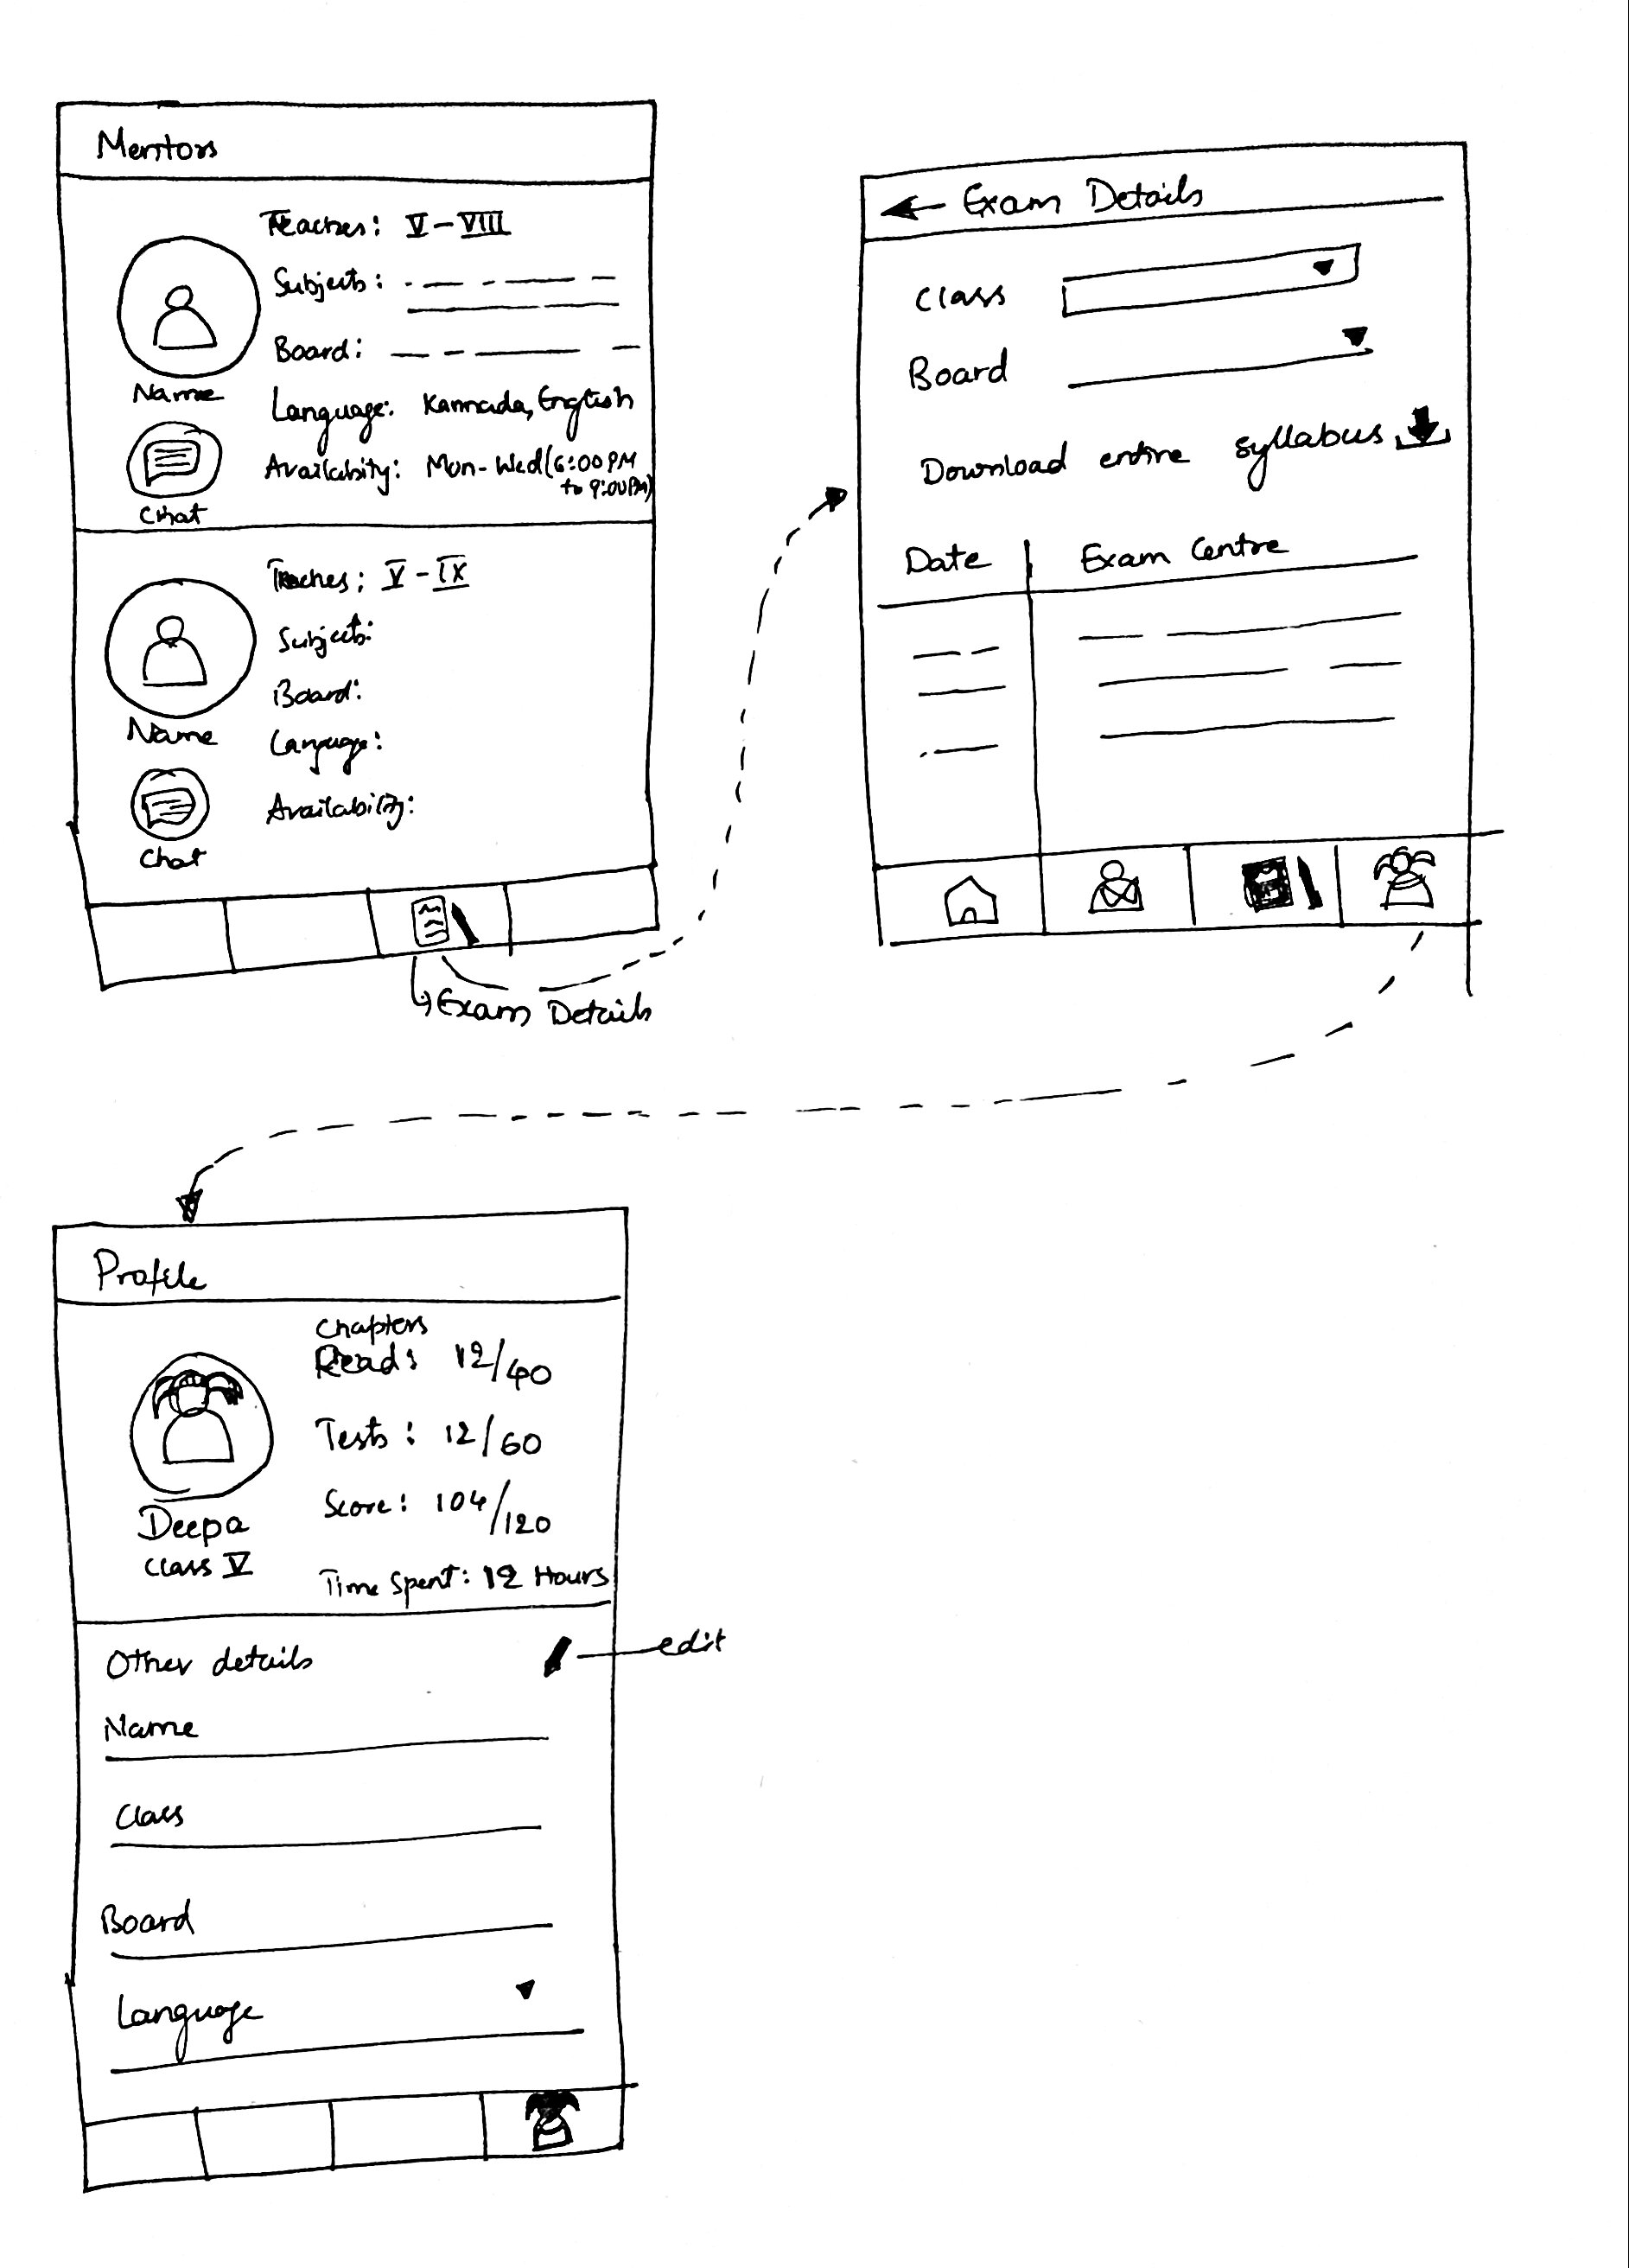 Mentors
Teaches: V - VIII
Subjects:
Board:
Name
Language: Kannada, English
Availability: Mon-Wed (6:00 PM
to 9:00 PM)
Chat
Teaches: V - IX
Subjects:
Board:
Name
Language:
Availability:
Chat
Exam Details
Exam Details
Class
Board
Download entire syllabus
Date | Exam Centre
Profile
Chapters
Read: 12/40
Tests: 12/60
Score: 104/120
Deepa
Class V
Time Spent: 12 Hours
Other details
edit
Name
Class
Board
Language